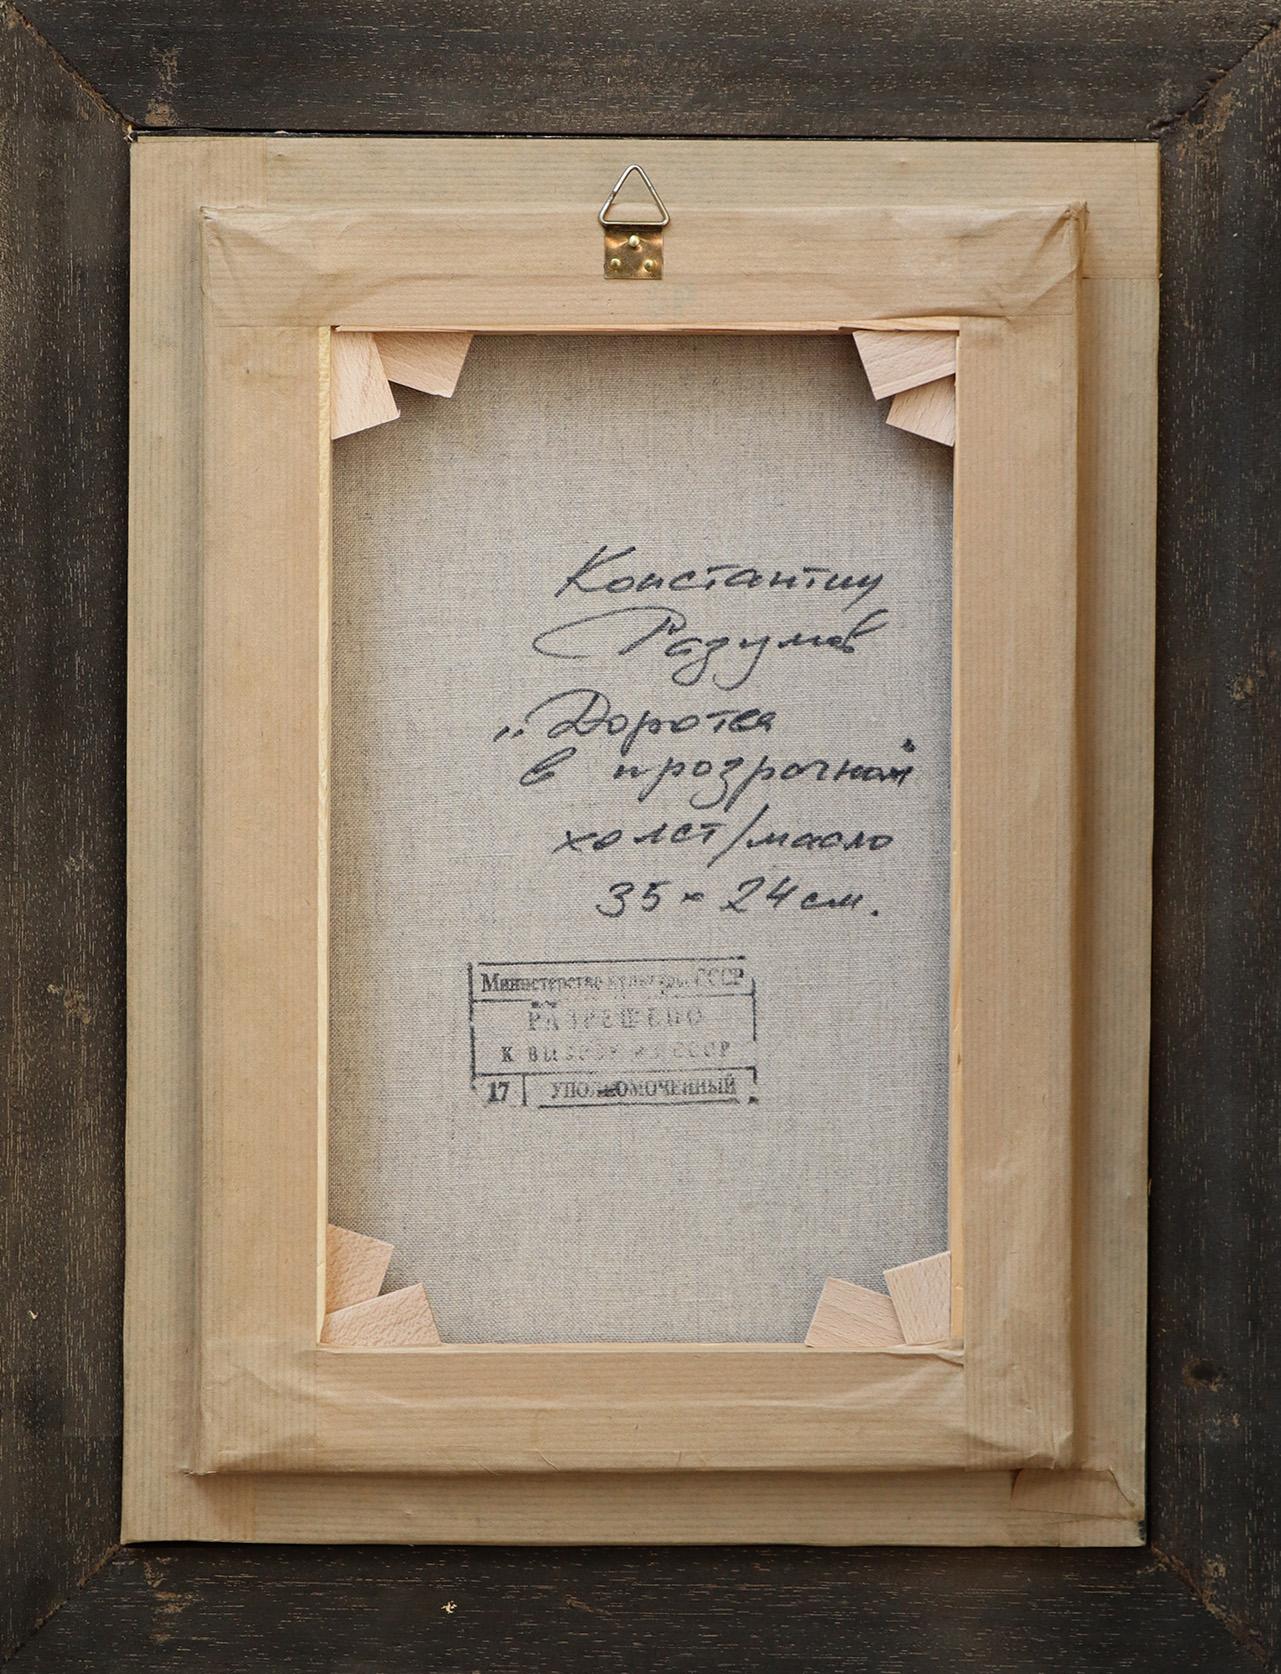 Константин
Разумов
„Доротea
в прозрачном"
холст/масло
35 × 24 см.
Министерство культуры СССР
РАЗРЕШЕНО
К ВЫВОЗУ ИЗ СССР
17 УПОЛНОМОЧЕННЫЙ